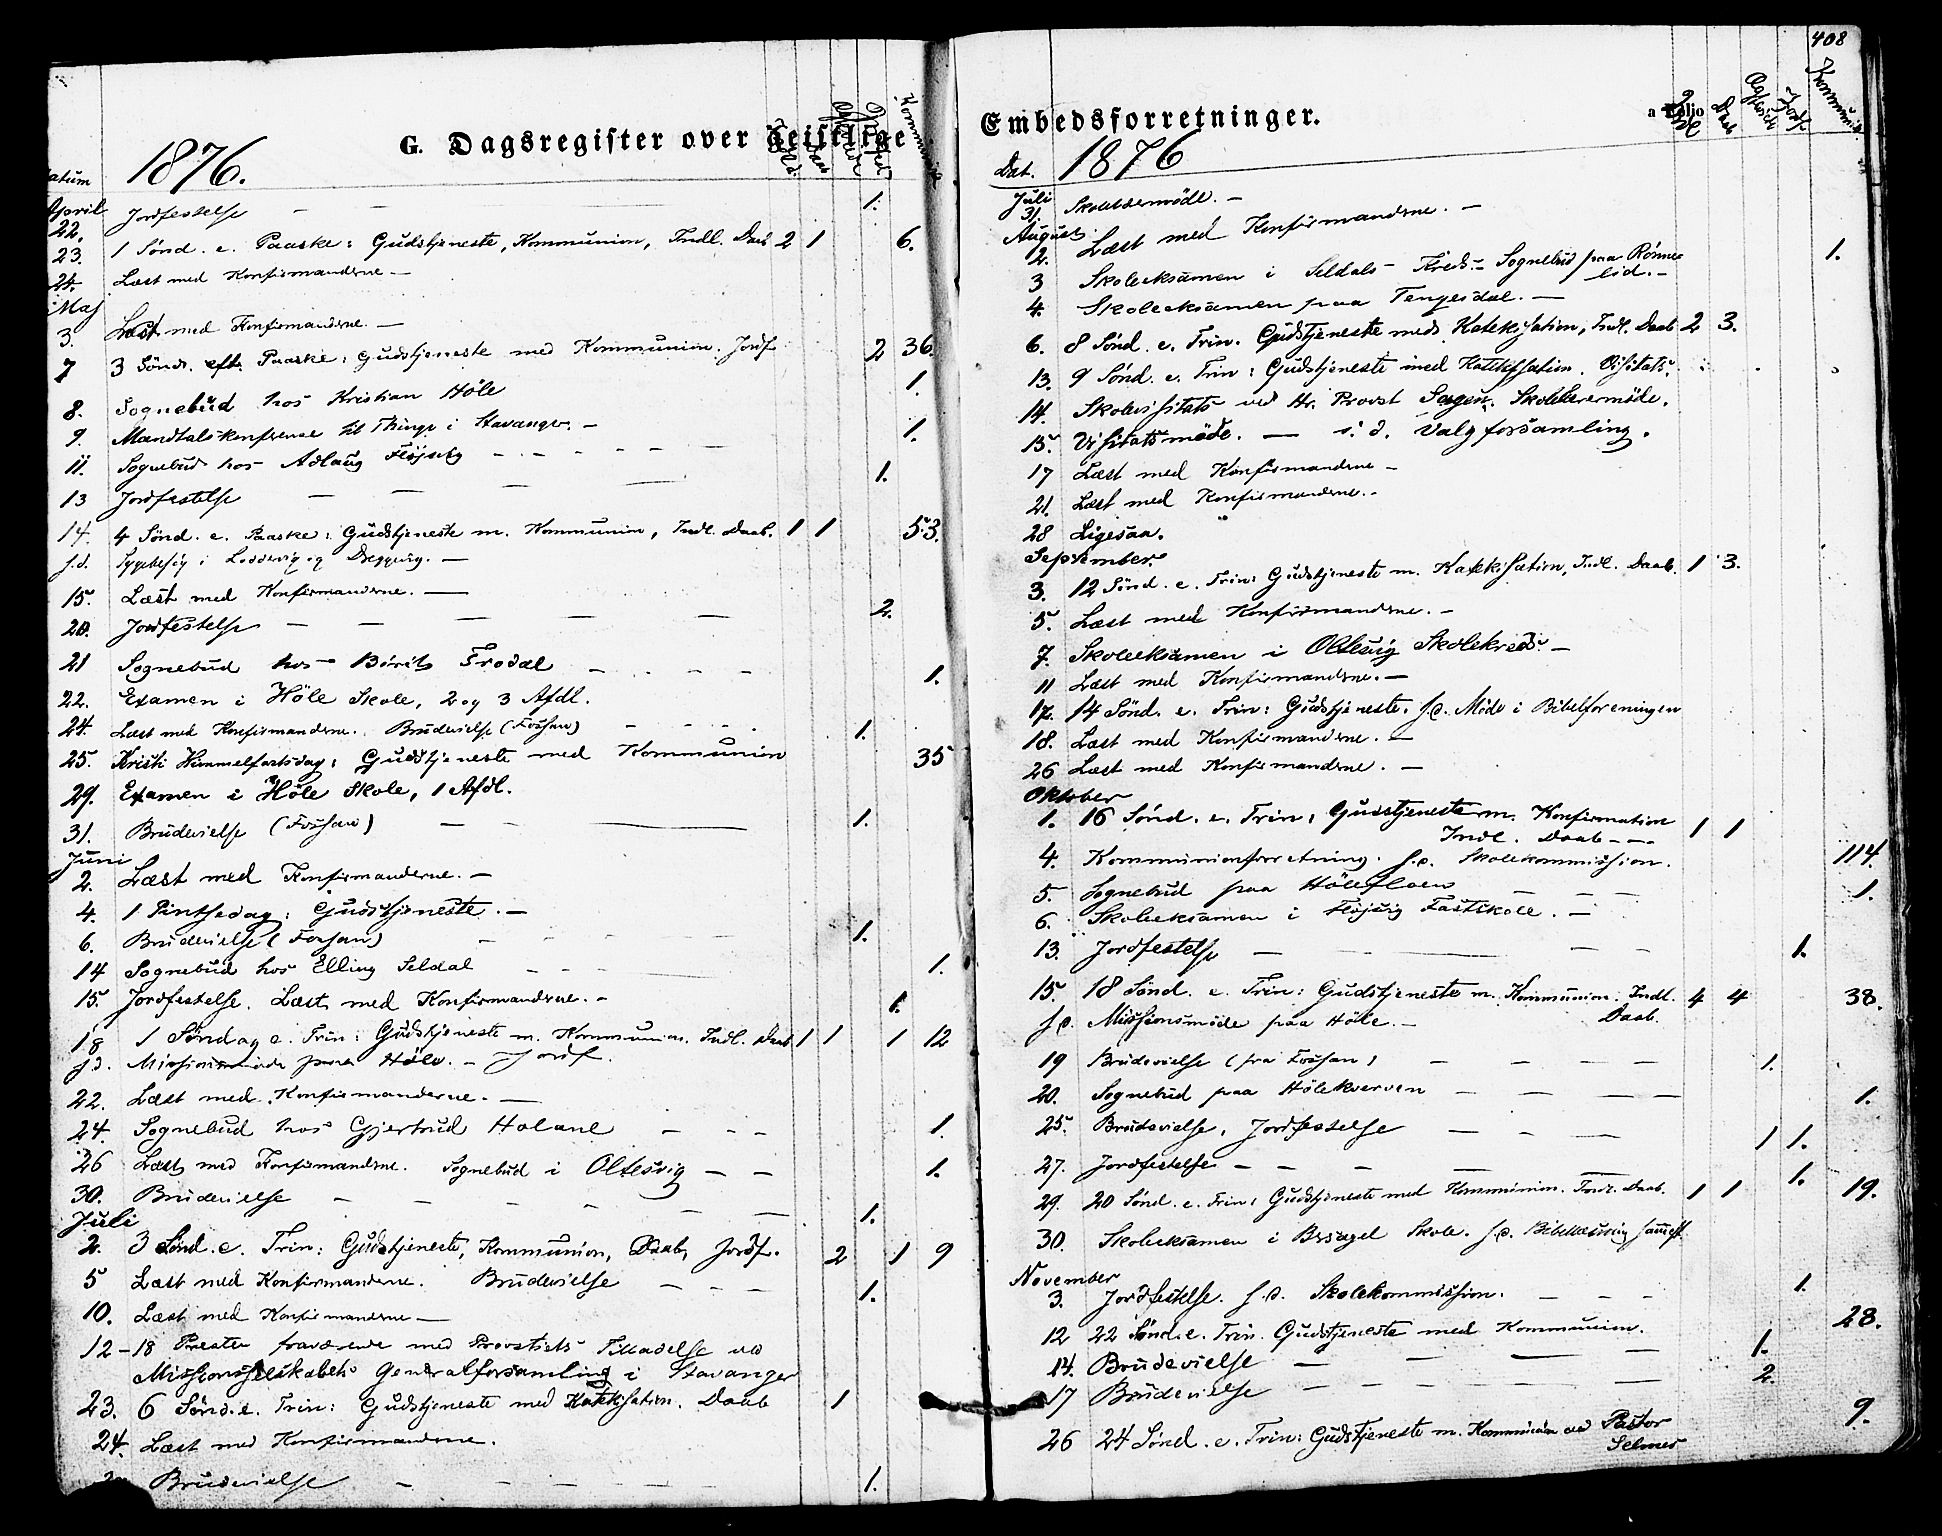 G. Dagsregister over Geistlige
1876.
Datum
Indl. Daab Kommunik.
April 22. Jordfestelse — — 1.
23. 1 Sönd. e. Paaske: Gudstjeneste, Kommunion, Indl. Daab 2 1 6.
24. Læst med Konfirmanderne —
Maj
3. Læst med Konfirmanderne. —
7 3 Sönd. eft. Paaske: Gudstjeneste med Kommunion. Jordf 2 36.
8. Sognebud hos Kristian Höle 1.
9. Mandtals til Thinge i Stavanger. —
11. Sognebud hos Adlaug — — — 1.
13 Jordfestelse — — — 1.
14. 4 Sönd. e. Paaske: Gudstjeneste m. Kommunion, Indl. Daab. 1 1 53.
s.d. i og —
15. Læst med Konfirmanderne. —
20. Jordfestelse — — — — 2.
21 Sognebud hos Frodal — — — 1.
22. Examen i Höle Skole, 2 og 3 Afdl.
24. Læst med Konfirmanderne. Brudevielse (Fossan) — — 1.
25. Kristi Himmelfartsdag: Gudstjeneste med Kommunion 35
29. Examen i Höle Skole, 1 Afdl.
31. Brudevielse (Fossan) — — 1.
Juni
2. Læst med Konfirmanderne. —
4. 1 Pintsedag: Gudstjeneste. —
6. Brudevielse (Fossan) — — 1.
14 Sognebud hos Elling Seldal — — 1.
15. Jordfestelse. Læst med Konfirmanderne. — 1.
18 1 Söndag e. Trin: Gudstjeneste m. Kommunion. Indl. Daab 1 1 1 12
s.d. Missionsmöde paa Höle. — Jordf.
22. Læst med Konfirmanderne. —
24. Sognebud hos Gjertrud Holane — — — 1.
26 Læst med Konfirmanderne. Sognebud i Oltesvig — — 1.
30. Brudevielse — — — — 1.
Juli
2. 3 Sönd. e. Trin: Gudstjeneste, Kommunion, Daab, Jordf. 2 1 9
5 Læst med Konfirmanderne. Brudevielse — — — 1.
10. Læst med Konfirmanderne —
12–18 Presten fraværende med Provstiets Tilladelse ved
Missionsselskabets Generalforsamling i Stavanger
23. 6 Sönd. e. Trin: Gudstjeneste med Katekisation. Daab 1
24. Læst med Konfirmanderne.
Brudevielse — — — 1.
408
Embedsforretninger.
a Folio
Indl. Daab Jordf. Kommunik.
Dat. 1876
Juli
31. Skolelærermöde. —
August
2. Læst med Konfirmanderne. —
3 Skoleeksamen i Seldals Kreds. — Sognebud paa Rönne- 1.
lid. —
4. Skoleeksamen paa Tengesdal. —
6. 8 Sönd. e. Trin. Gudstjeneste med Katekisation, Indl. Daab 2 3.
13. 9 Sönd. e. Trin: Gudstjeneste med Katekisation. Visitats.
14. Skolevisitats ved Hr. Provst Sagen. Skolelærermöde.
15. Visitatsmöde. — s. d. Valgforsamling.
17 Læst med Konfirmanderne —
21. Læst med Konfirmanderne. —
28 Ligesaa.
September
3. 12 Sönd. e. Trin: Gudstjeneste m. Katekisation, Indl. Daab. 1 3.
5. Læst med Konfirmanderne. —
7. Skoleeksamen i Oltesvig Skolekreds. —
11 Læst med Konfirmanderne. —
17. 14 Sönd. e. Trin: Gudstjeneste. s.d. Möde i Bibelforeningen
18. Læst med Konfirmanderne. —
26 Læst med Konfirmanderne. —
Oktober
1. 16 Sönd. e. Trin: Gudstjeneste m. Konfirmation
Indl. Daab — — 1 1
4. Kommunionforretning. s.d. Skolekommission. 114.
5. Sognebud paa Höle — — — 1.
6. Skoleeksamen i Fastskole. —
13. Jordfestelse — — — 1.
15. 18 Sönd. e. Trin: Gudstjeneste m. Kommunion. Indl. 4 4 38.
Daab.
s.d. Missionsmöde paa Höle. —
19 Brudevielse (fra Fossan) — — — 1.
20. Sognebud paa Hölekverven — — — 1.
25. Brudevielse. Jordfestelse — — — 1 1.
27. Jordfestelse — — — — 1.
29. 20 Sönd. e. Trin: Gudstjeneste med Kommunion. Indl. Daab. 1 1 19.
30. Skoleeksamen i Bersagel Skole. s.d. Bibellæsning sammest
November
3. Jordfestelse. s.d. Skolekommission. — — 1.
12 22 Sönd. e. Trin. Gudstjeneste med Kommunion. 28.
14. Brudevielse — — — 1.
17 Brudevielse — — — 2.
26 24 Sönd. e. Trin: Gudstjeneste m. Kommunion ved Pastor 9.
Selmer